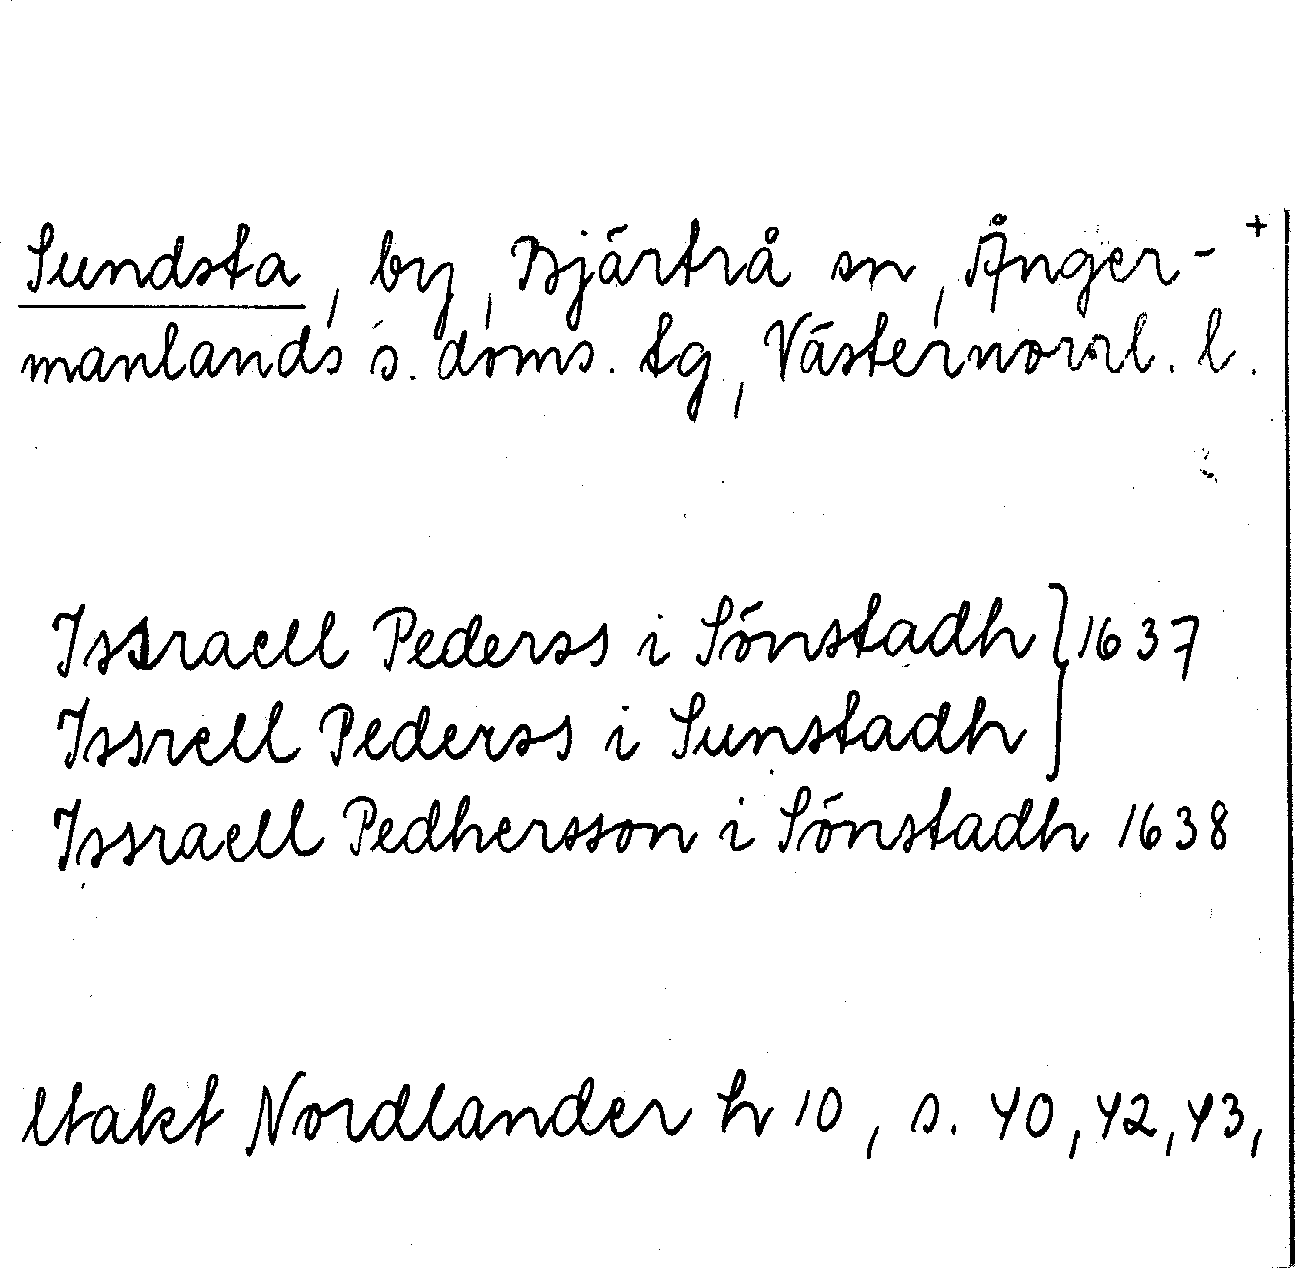 Sundsta, by, Bjärtrå sn, Ånger- +
manlands s. doms. tg, Västernorrl. l.
Issraell Perderss i Sönstadh } 1637
Issrell Pederss i Sunstadh
Issraell Pedhersson i Sönstadh 1638
Utakt Nordlander h 10, s. 40, 42, 43,